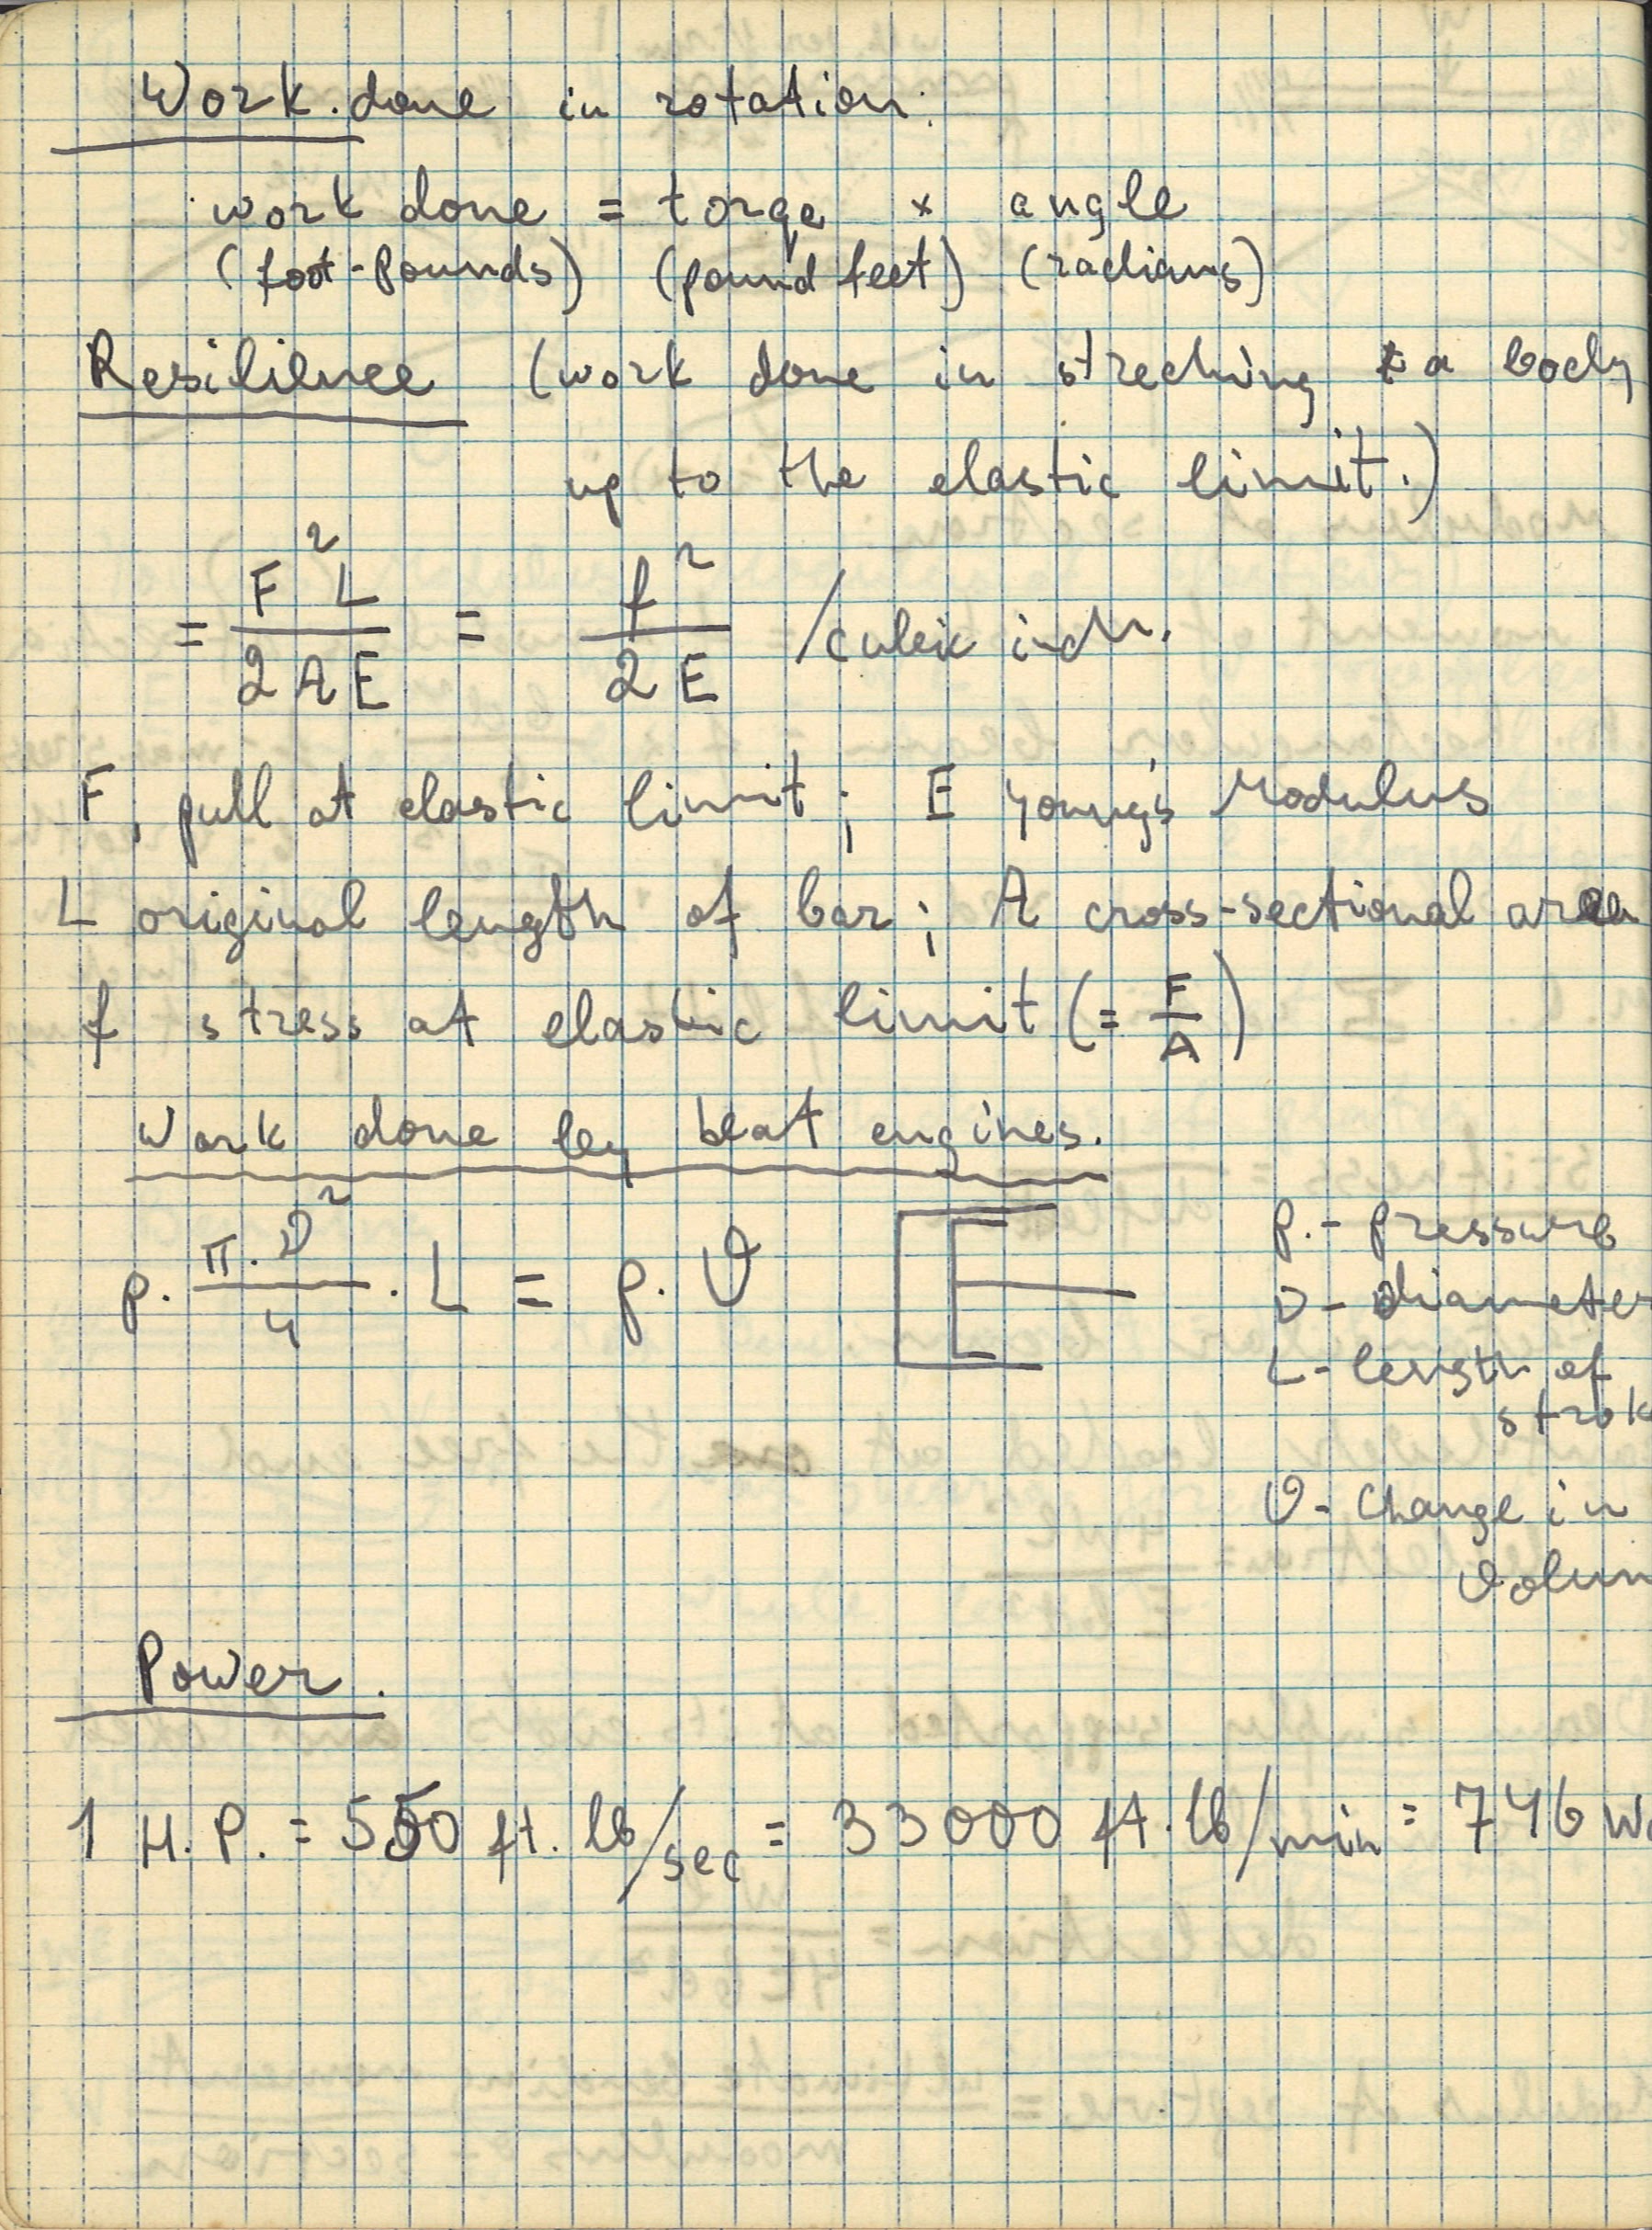 Work. done in rotation:
work done = torqe × angle
(foot-pounds) (pound feet) (radians)
Resilience (work done in streching a body
up to the elastic limit.)
= F² L / 2 A E = f² / 2 E /cubic inch.
F, pull at elastic limit; E Young's Modulus
L original length of bar; A cross-sectional area
f stress at elastic limit (= F/A)
Work done by heat engines.
p. π.D²/4 . L = p. V
p.- pressure
D- diameter
L- length of
strok
V- Change in
Volum
Power.
1 H.P. = 550 ft. lb/sec = 33000 ft. lb/min = 746 Wa